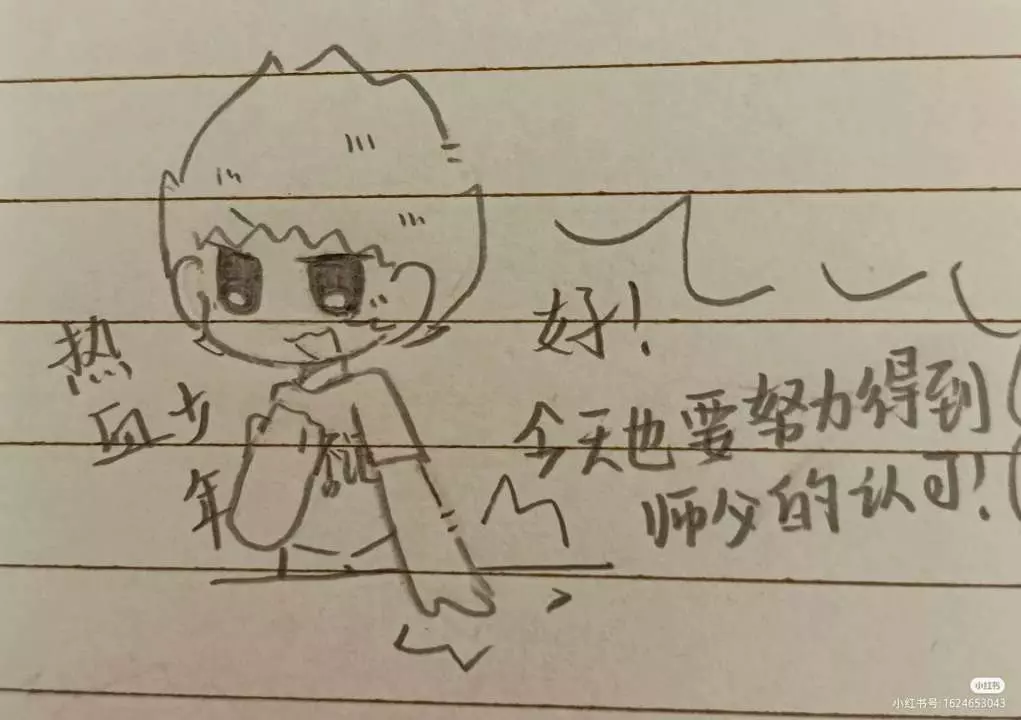 热
血少
年
好！
今天也要努力得到
师父的认可！
小红书
小红书号:1624653043